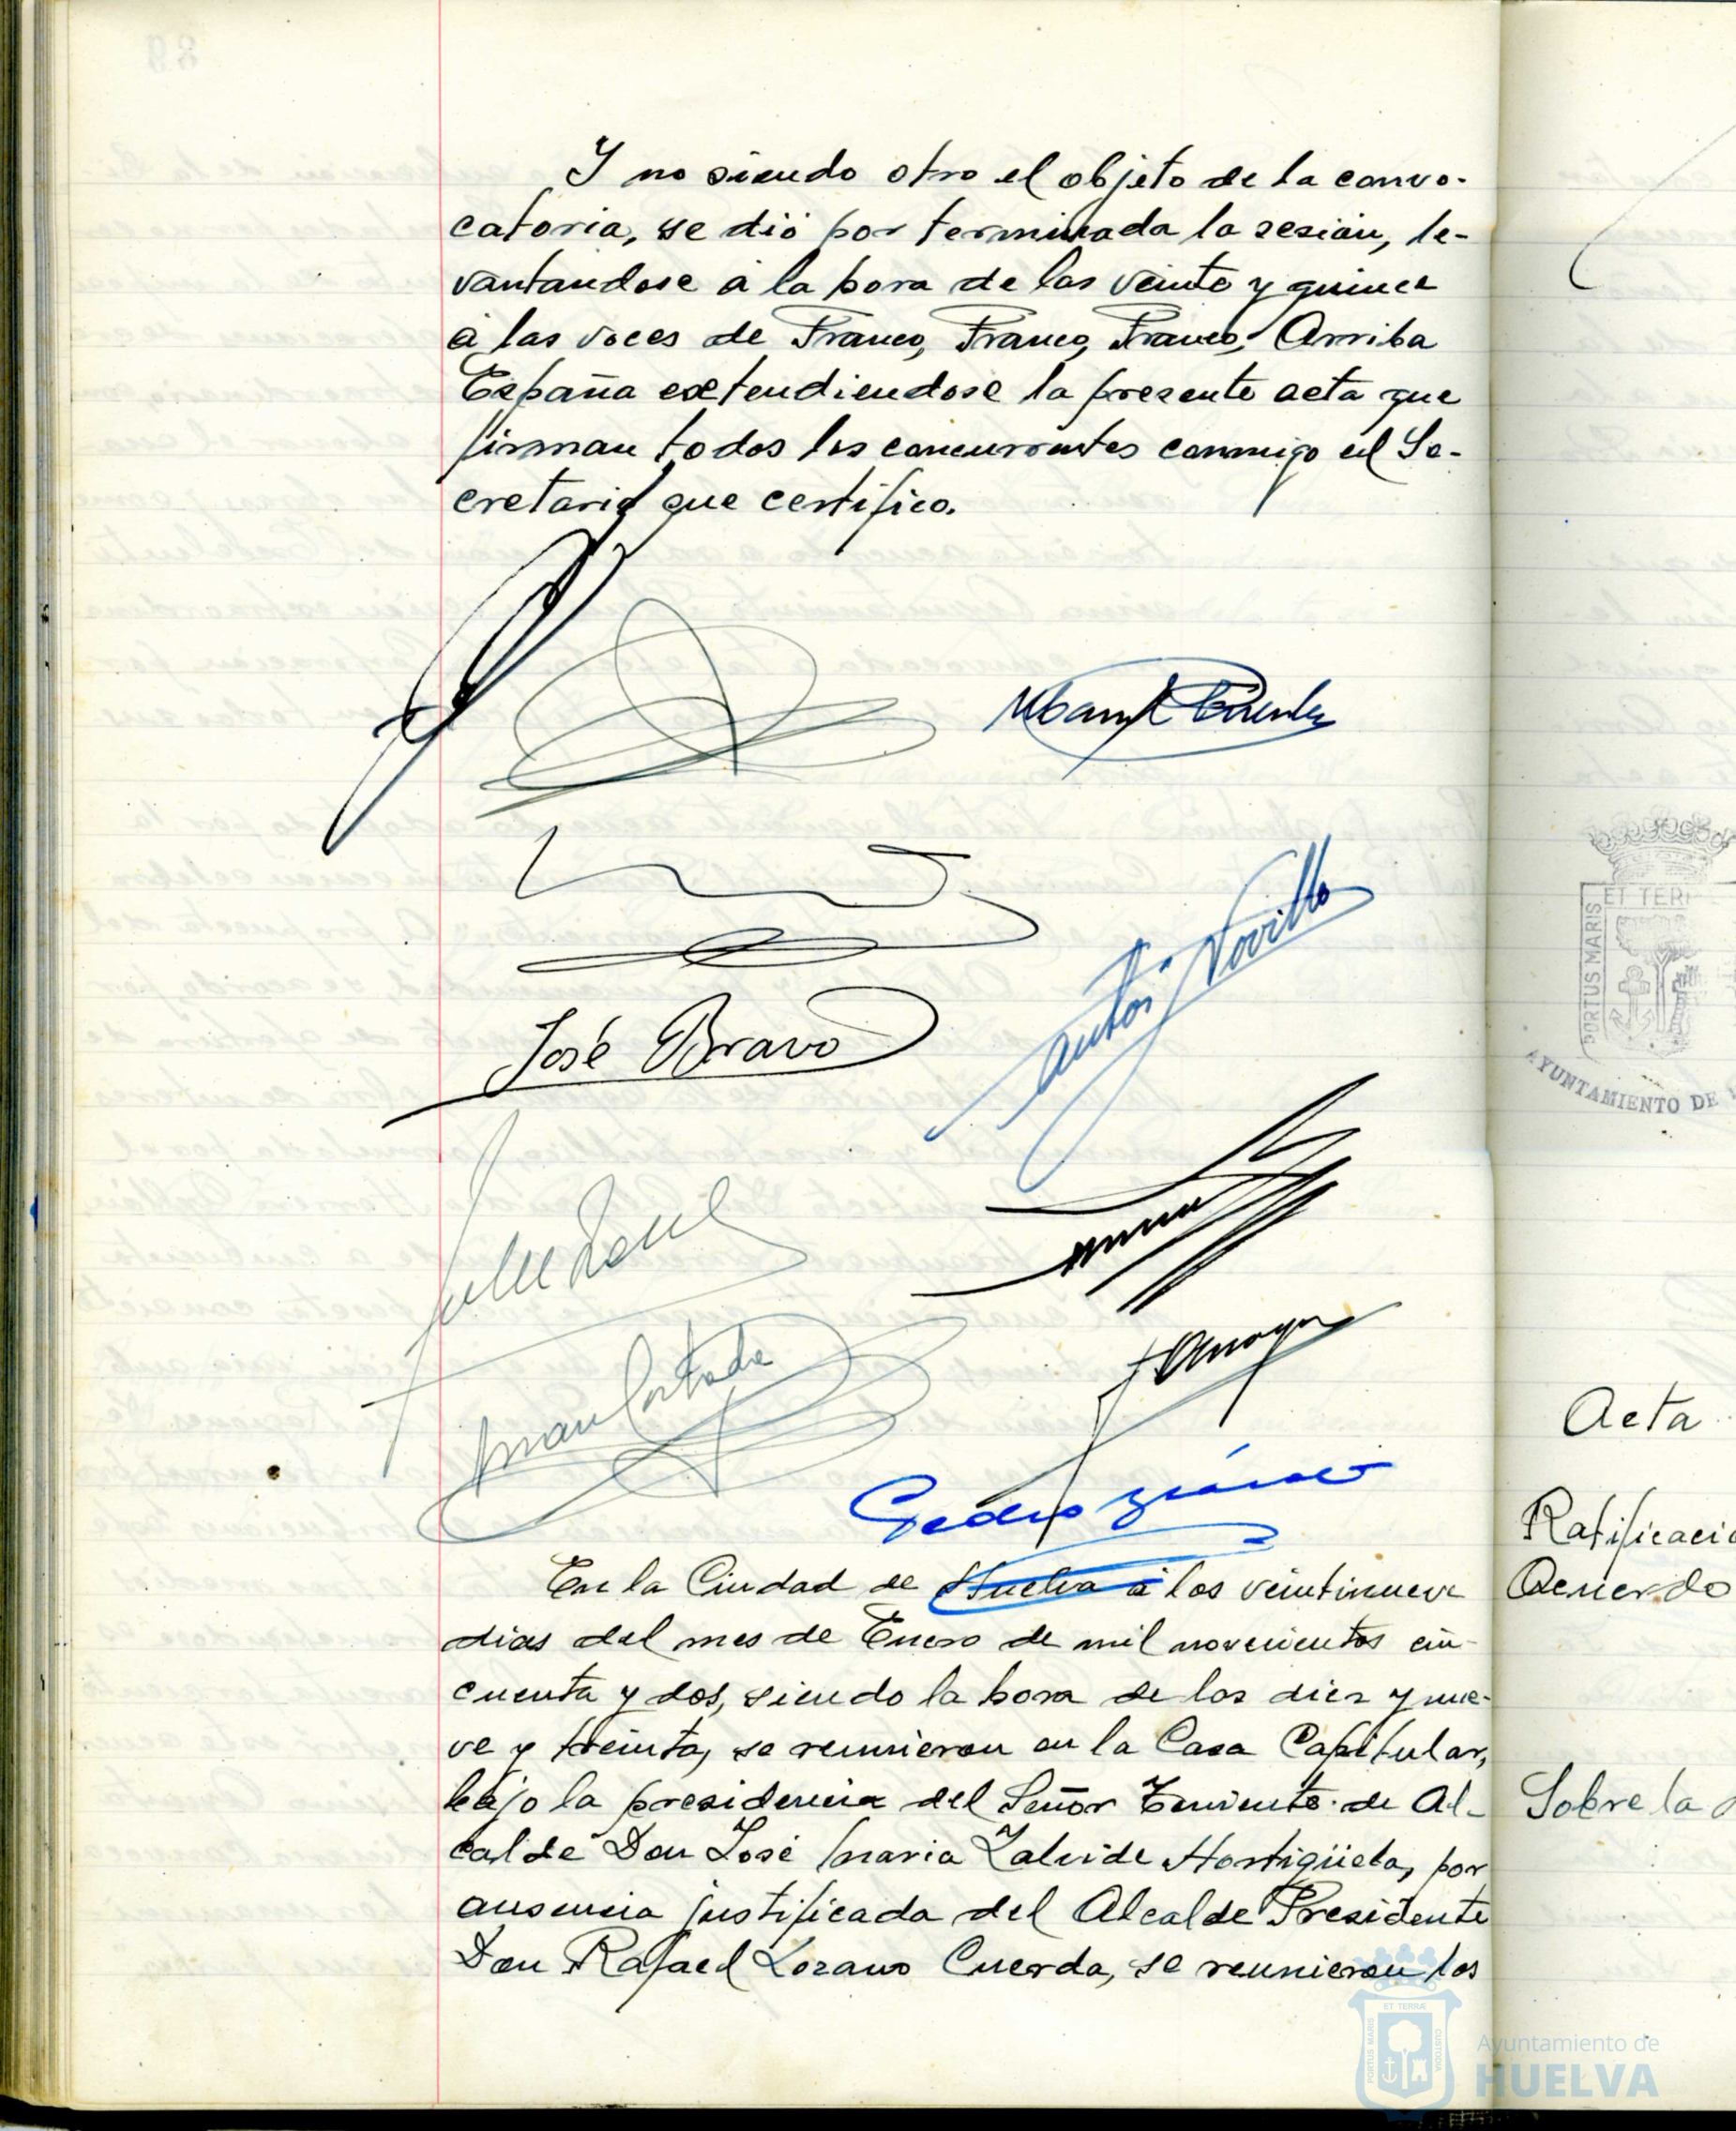 Y no siendo otro el objeto de la convo-
catoria, se dió por terminada la sesión, le-
vantandose a la hora de las veinte y quince
a las voces de Franco, Franco, Franco, Arriba
España extendiendose la presente acta que
firman todos los concurrentes conmigo el Se-
cretario que certifico.
José Bravo
Antº Novillo
Juan Cortada
J Amaya
Pedro
En la Ciudad de Huelva a los veintinueve
dias del mes de Enero de mil novecientos cin-
cuenta y dos, siendo la hora de las diez y nue-
ve y treinta, se reunieron en la Casa Capitular,
bajo la presidencia del Señor Teniente de Al-
calde Don José Maria Zalvide Hortigüela, por
ausencia justificada del Alcalde Presidente
Don Rafael Lozano Cuerda, se reunieron los
ET TERR
PORTUS MARIS
AYUNTAMIENTO DE
Acta
Ratificacio
Acuerdo
Sobre la
ET TERRAE
PORTUS MARIS
CUSTODIA
Ayuntamiento de
HUELVA